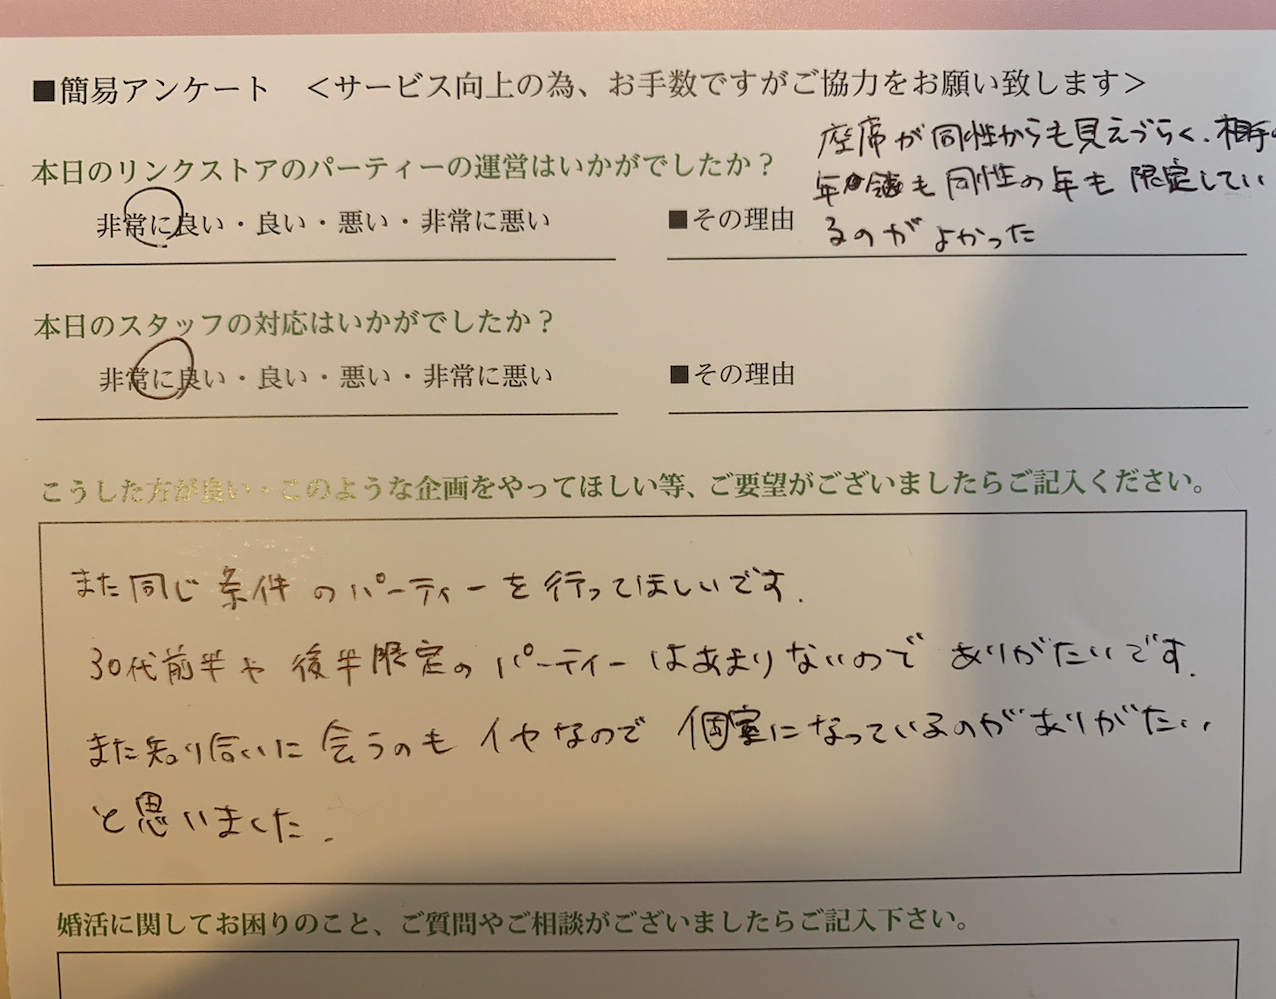 ■簡易アンケート ＜サービス向上の為、お手数ですがご協力をお願い致します＞
本日のリンクストアのパーティーの運営はいかがでしたか？
非常に良い・良い・悪い・非常に悪い
■その理由
座席が同性からも見えづらく、相手の
年齢も同性の年も限定してい
るのがよかった
本日のスタッフの対応はいかがでしたか？
非常に良い・良い・悪い・非常に悪い
■その理由
こうした方が良い・このような企画をやってほしい等、ご要望がございましたらご記入ください。
また同じ条件のパーティーを行ってほしいです.
30代前半や後半限定のパーティーはあまりないのでありがたいです.
また知り合いに会うのもイヤなので個室になっているのがありがたい
と思いました.
婚活に関してお困りのこと、ご質問やご相談がございましたらご記入下さい。